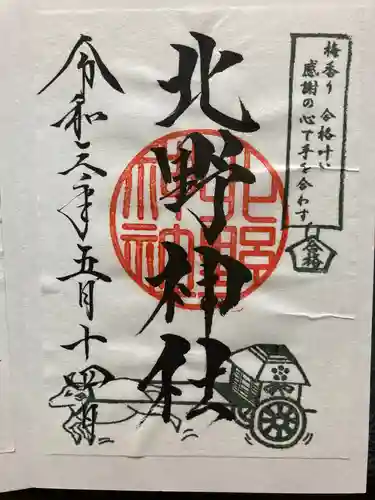 梅香り 合格叶い
感謝の心で手を合わす
合格
北野神社
北野
神社
令和三年五月十四日